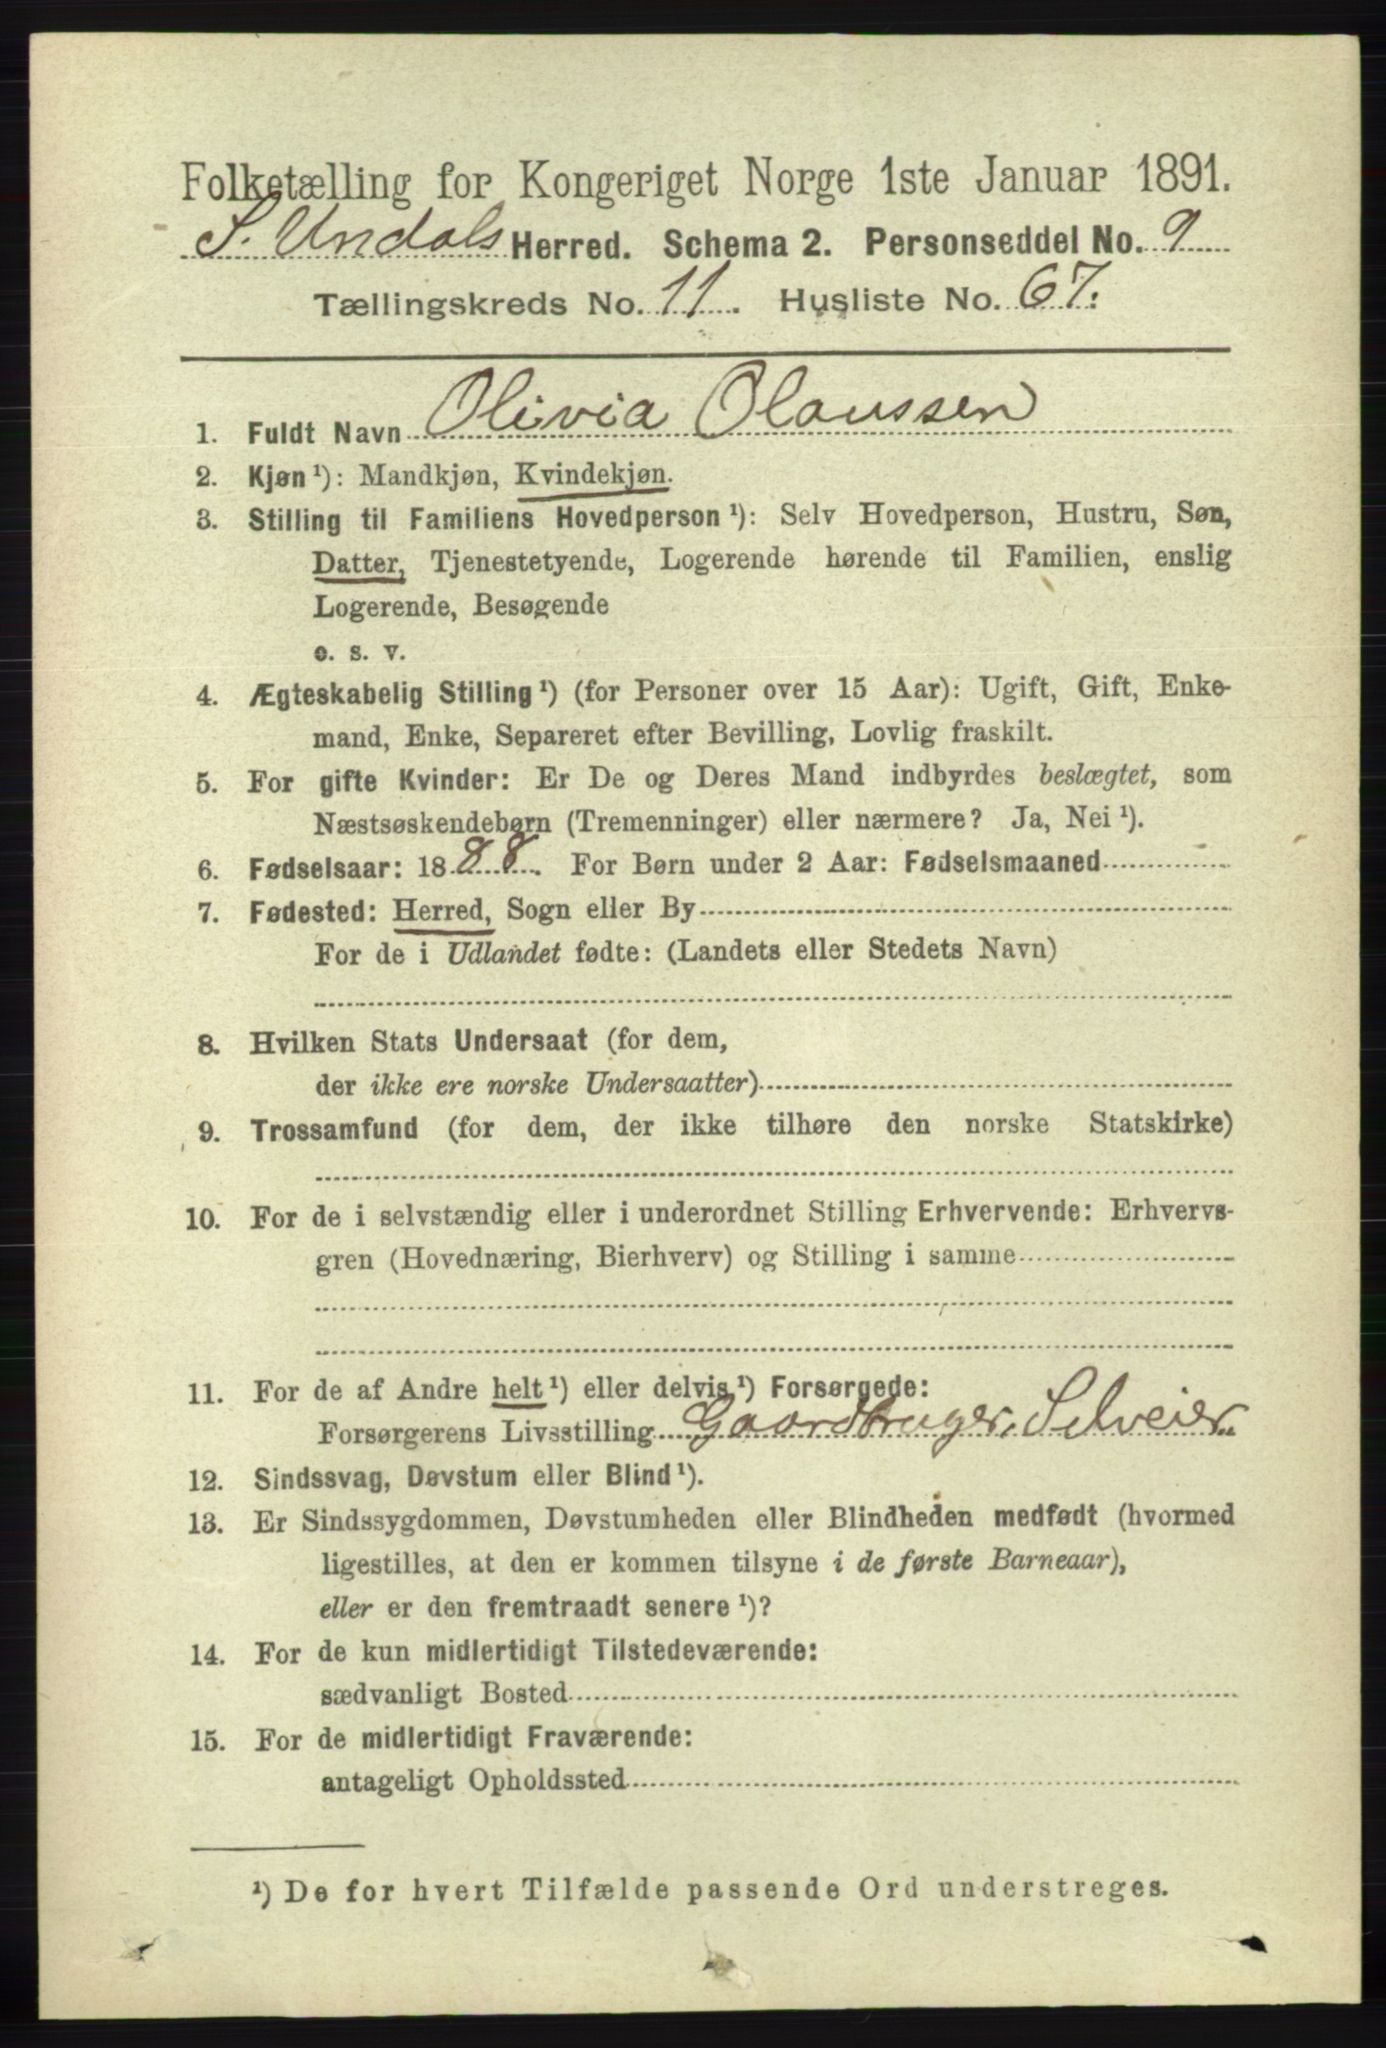 Folketælling for Kongeriget Norge 1ste Januar 1891.
S. Undals Herred. Schema 2. Personseddel No. 9
Tællingskreds No. 11. Husliste No. 67.
1. Fuldt Navn Olivia Olaussen
2. Kjøn ¹): Mandkjøn, Kvindekjøn.
3. Stilling til Familiens Hovedperson ¹): Selv Hovedperson, Hustru, Søn,
Datter, Tjenestetyende, Logerende hørende til Familien, enslig
Logerende, Besøgende
o. s. v.
4. Ægteskabelig Stilling ¹) (for Personer over 15 Aar): Ugift, Gift, Enke-
mand, Enke, Separeret efter Bevilling, Lovlig fraskilt.
5. For gifte Kvinder: Er De og Deres Mand indbyrdes beslægtet, som
Næstsøskendebørn (Tremenninger) eller nærmere? Ja, Nei ¹).
6. Fødselsaar: 1888. For Børn under 2 Aar: Fødselsmaaned
7. Fødested: Herred, Sogn eller By
For de i Udlandet fødte: (Landets eller Stedets Navn)
8. Hvilken Stats Undersaat (for dem,
der ikke ere norske Undersaatter)
9. Trossamfund (for dem, der ikke tilhøre den norske Statskirke)
10. For de i selvstændig eller i underordnet Stilling Erhvervende: Erhvervs-
gren (Hovednæring, Bierhverv) og Stilling i samme
11. For de af Andre helt ¹) eller delvis ¹) Forsørgede:
Forsørgerens Livsstilling Gaardbruger, Selveier.
12. Sindssvag, Døvstum eller Blind ¹).
13. Er Sindssygdommen, Døvstumheden eller Blindheden medfødt (hvormed
ligestilles, at den er kommen tilsyne i de første Barneaar),
eller er den fremtraadt senere ¹)?
14. For de kun midlertidigt Tilstedeværende:
sædvanligt Bosted
15. For de midlertidigt Fraværende:
antageligt Opholdssted
¹) De for hvert Tilfælde passende Ord understreges.